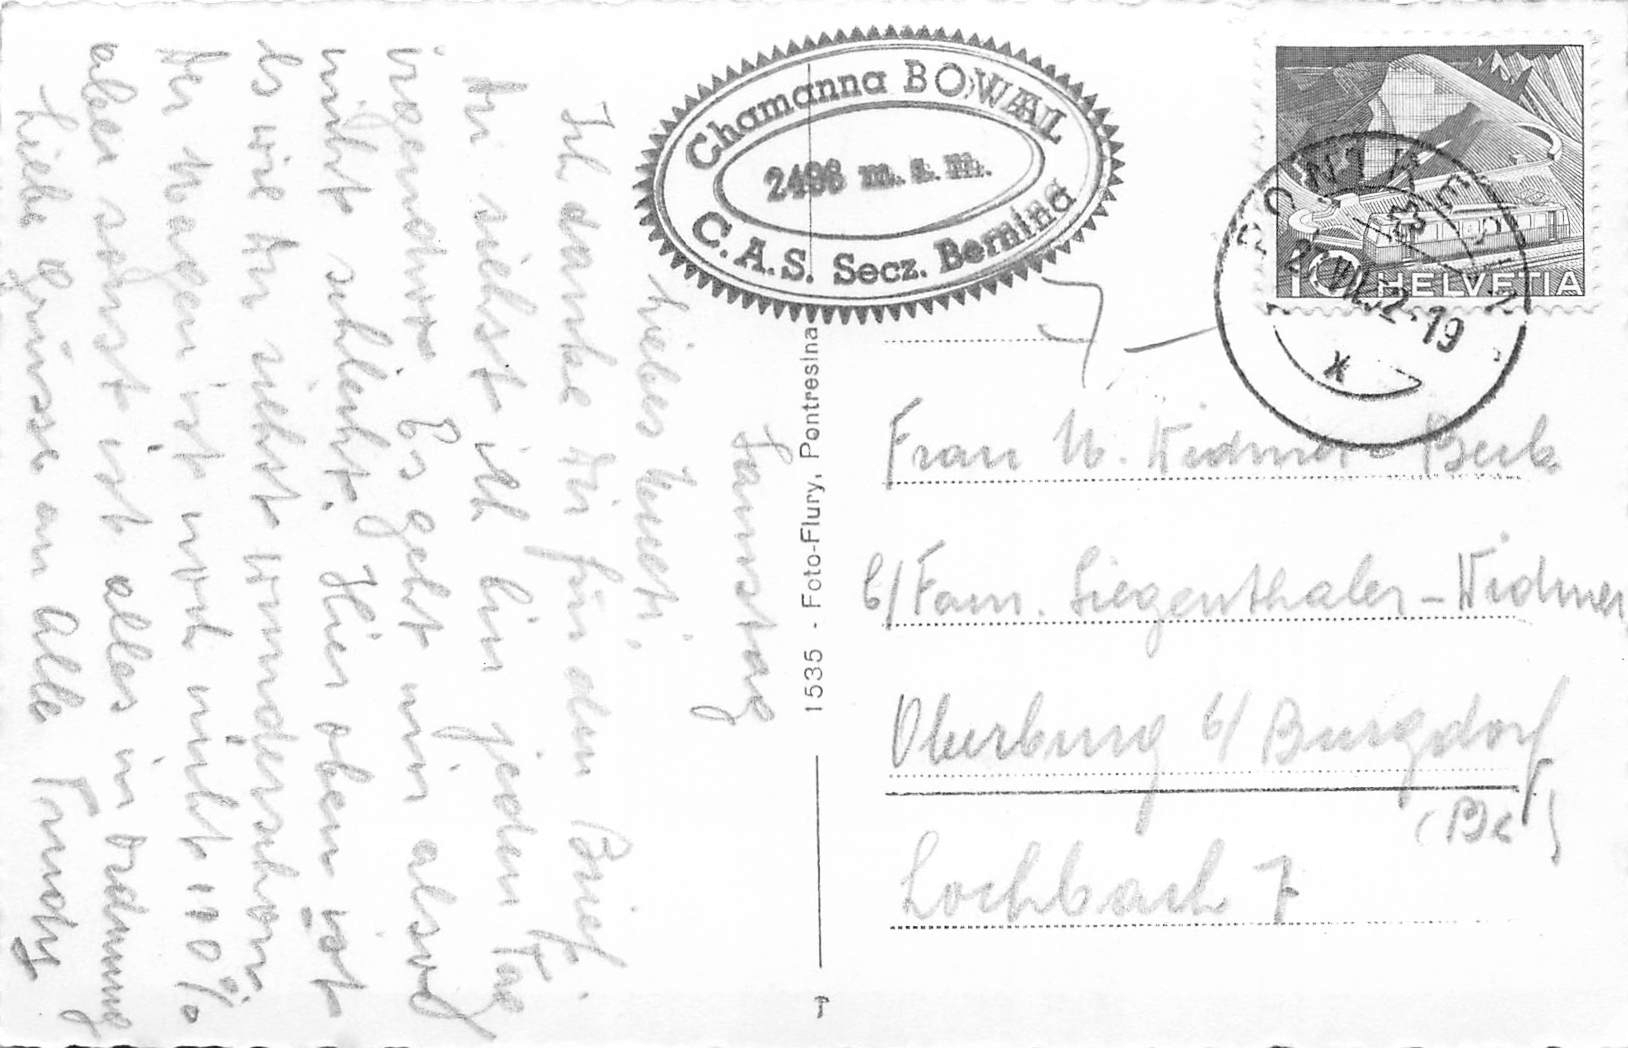 Samstag
Liebes Mueti,
Ich danke Dir für den Brief.
Du siehst ich bin jeden Tag
irgendwo. Es geht mir also
nicht schlecht. Hier oben ist
es wie Du siehst wunderschön
Der Magen ist noch nicht 100%
aber sonst ist alles in Ordnung
Liebe Grüsse an Alle Trudy
Chamanna BOWAL
2498 m. s. m.
C. A. S. Secz. Bernina
1535 - Foto-Flury, Pontresina
10 HELVETIA
PONTRESINA
VII.52-19
Frau W. Widmer - Beck
b/ Fam. Siegenthaler - Widmer
Oberburg b/ Burgdorf
(Be)
Lochbach 7